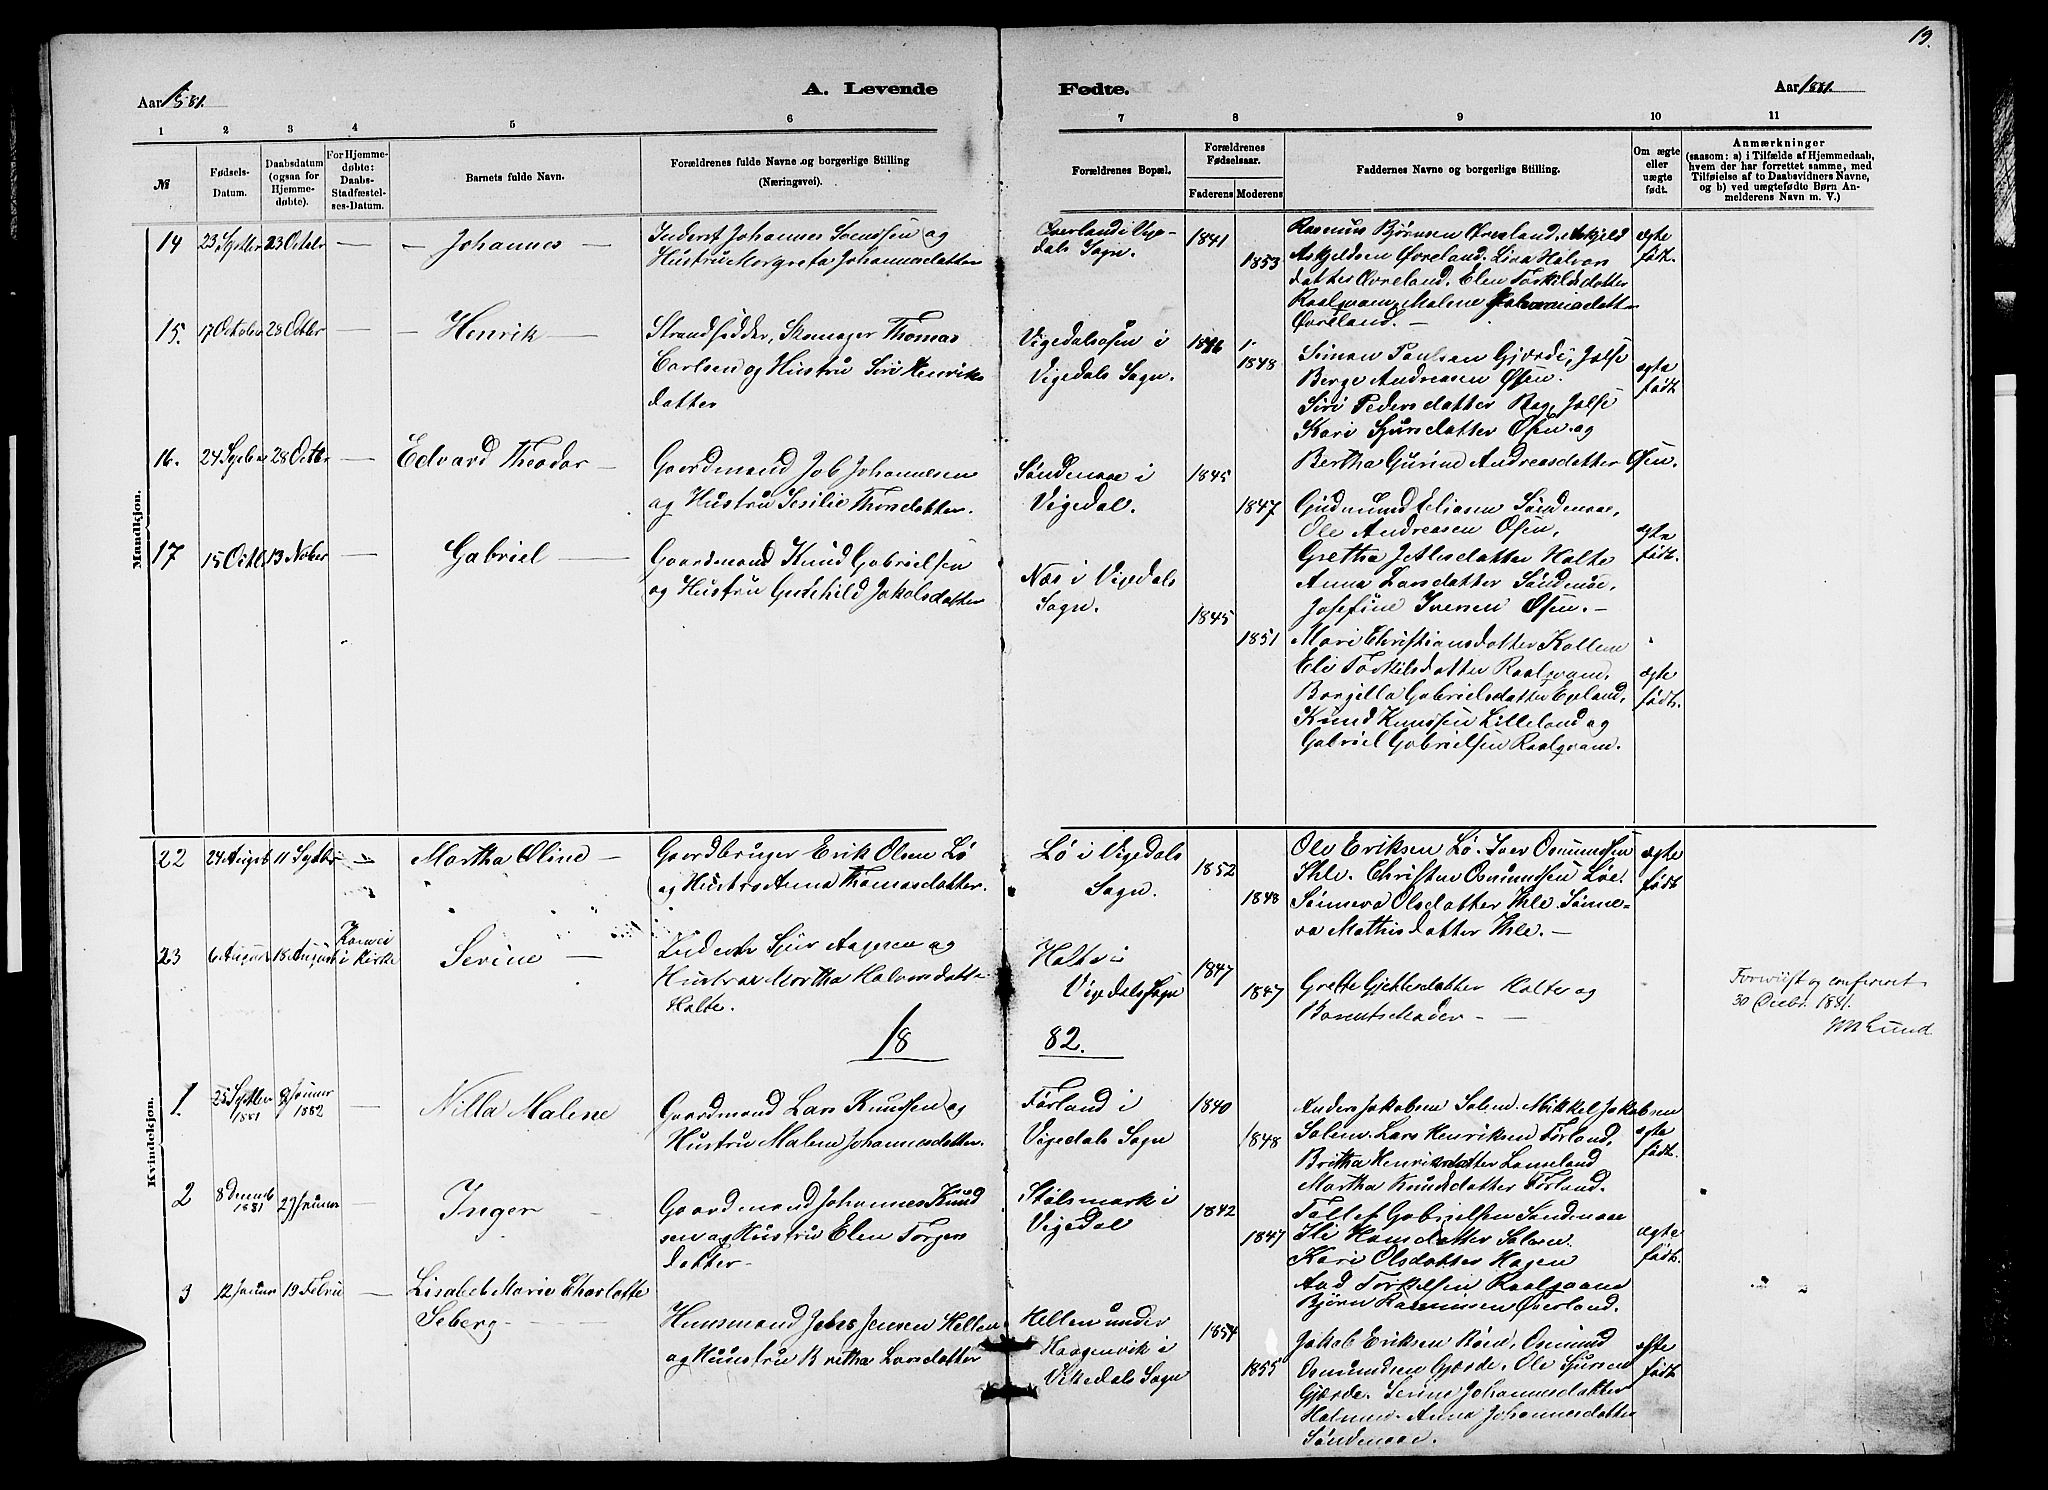 19.
Aar 1881. A. Levende Fødte. Aar 1881.
1 2 3 4 5 6 7 8 9 10 11
№
Fødsels-
Datum.
Daabsdatum
(ogsaa for
Hjemme-
døbte).
For Hjemme-
døbte:
Daabs-
Stadfæstel-
ses-Datum.
Barnets fulde Navn.
Forældrenes fulde Navne og borgerlige Stilling
(Næringsvei).
Forældrenes Bopæl.
Forældrenes
Fødselsaar.
Faderens Moderens
Faddernes Navne og borgerlige Stilling.
Om ægte
eller
uægte
født.
Anmærkninger
(saasom: a) i Tilfælde af Hjemmedaab,
hvem der har forrettet samme, med
Tilføielse af to Daabsvidners Navne,
og b) ved uægtefødte Børn An-
melderens Navn m. V.)
Mandkjøn.
14 23 Septbr 23 Octbr — — Johannes —
og
Hustru Margreta Johannesdatter
Øvreland i Vige-
dals Sogn.
1841
1853
Rasmus Bjørnsen Øvreland, Askjeld
Askjeldsen Øvreland. Halvors
datter Øvreland. Elen Torkildsdatter
Raalqvam, Malene
Øvreland. —
ægte
født.
15. 17 October 23 Octbr — — Henrik —
Strandsidder, Skomager Thomas
Carlsen og Hustru Siri Henriks
datter
Vigedalsøsen i
Vigedals Sogn.
1846
1848
Simon Paulsen Gjærde,
Berge Andreasen Øsen.
Siri Pedersdatter
Kari Sjursdatter Øsen og
Bertha Gurine Andreasdatter Øsen.
ægte
født
16. 24 28 Octbr — Edvard Theodor —
Gaardmand Job Johannesen
og Hustru Sesilie Thorsdatter.
Søndenaae i
Vigedal.
1845
1847
Gudmund Eliasen Søndenaae,
Ole Andreasen Øsen,
Gretha Jetlesdatter Halte
Anna Larsdatter
Josefine Iversen Øsen. —
ægte
født.
17 15 Octb 13 Nober — Gabriel —
Gaardmand Knud Gabrielsen
og Hustru Jakobsdatter
Næs i Vigedals
Sogn.
1845
1851
Mari Christiansdatter
Eli Torkilsdatter Raalqvam,
Gabrielsdatter
Knud Knudsen Lilleland og
Gabriel Gabrielsen Raalqvam.
ægte
født.
Kvindekjøn.
22 24 August 11 Septbr — Martha Oline —
Gaardbruger Erik Olsen Lø
og Hustru Anna Thomasdatter.
Lø i Vigedals
Sogn.
1852
1848
Ole Eriksen Lø. Iver Osmundsen
Ihle. Christen Osmundsen Løe.
Sønneva Olsdatter Ihle. Sønne-
va Mathisdatter Ihle. —
ægte
født.
23 6 August 18 August i Kirke Serine —
Inderst Sjur Aagesen og
Hustrue Martha Halvorsdatter
Halte.
Halte i
Vigedals Sogn
1847
1847
Grethe Gjetlesdatter Halte og
Barnets Moder — —
Forevist og confereret
30 Decbr. 1881.
Lund
18 82.
1. 25 Septbr 1881 9 Januar 1882 — Nilla Malene
Gaardmand Lars Knudsen og
Hustru Malene Johannesdatter.
Førland i
Vigedals Sogn
1840
1848
Anders Jakobsen Salen. Mikkel Jakobsen
Salen. Lars Henriksen Førland,
Britha Henriksdatter
Martha Knudsdatter Førland.
ægte
født.
2 8 Decemb 1881 29 Januar — Inger —
Gaardmand Johannes Knud
sen og Hustru Elen Torgers
datter —
Stølsmark i
Vigedal
1842
1847
Tollef Gabrielsen Søndenaae
Hansdatter Salen.
Kari Olsdatter Hagen
Torkelsen
Bjørn Rasmussen Øvreland.
ægte
født.
3 12 Januar 19 Febru — Lisabet Marie Charlotte
Seberg — — —
Huusmand Jensen Hellen
og Huustru Britha Larsdatter
Hellen under
Haagenvik i
Vikedals Sogn
1854
1855
Jakob Eriksen Osmund
Osmundsen Gjærde. Ole Sjursen
Gjærde. Serine Johannesdatter
Anna Johannesdatter
Søndenaae.
ægte
født.